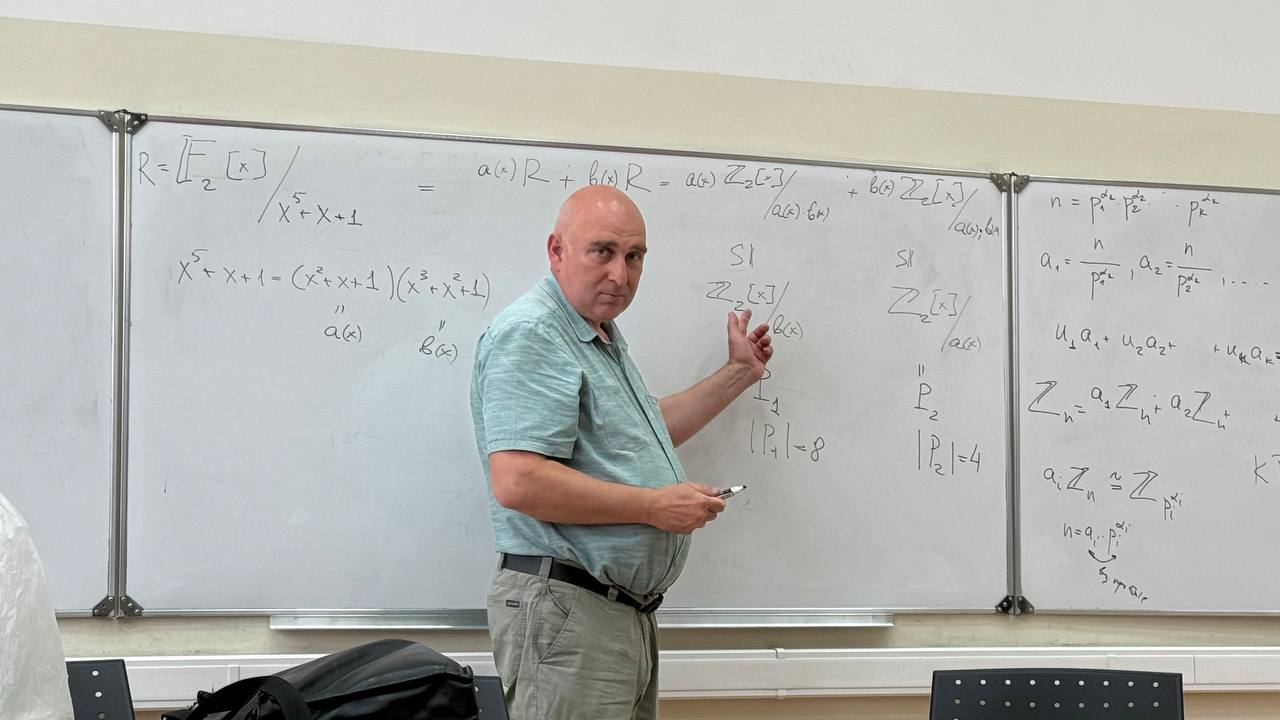 R = 𝔽₂[x] / x⁵+x+1 = a(x) R + b(x) R = a(x) ℤ₂[x] / a(x)·b(x) + b(x) ℤ₂[x] / a(x)·b(x)
x⁵+x+1 = (x²+x+1)(x³+x²+1)
" "
a(x) b(x)
SII SII
ℤ₂[x] / b(x) ℤ₂[x] / a(x)
"
P₁ P₂
|P₁|=8 |P₂|=4
n = p₁^α₁ · p₂^α₂ · · p_k^α_k
a₁ = n / p₁^α₁ , a₂ = n / p₂^α₂ , ....
u₁a₁ + u₂a₂ + + u_k a_k =
ℤₙ = a₁ℤₙ + a₂ℤₙ +
aᵢℤₙ ≅ ℤ_pᵢ^αᵢ
n = aᵢ · pᵢ^αᵢ